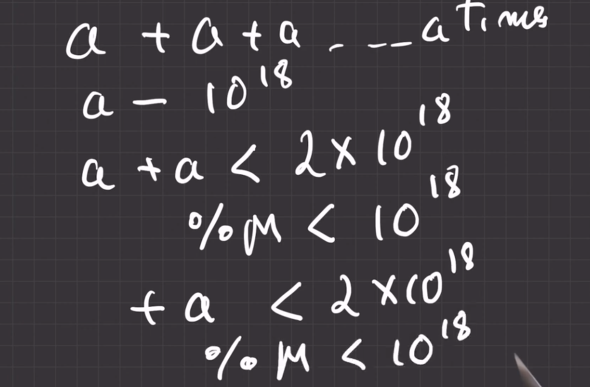 a + a + a - - - a Times
a - 10^18
a + a < 2 × 10^18
% M < 10^18
+ a < 2 × 10^18
% M < 10^18